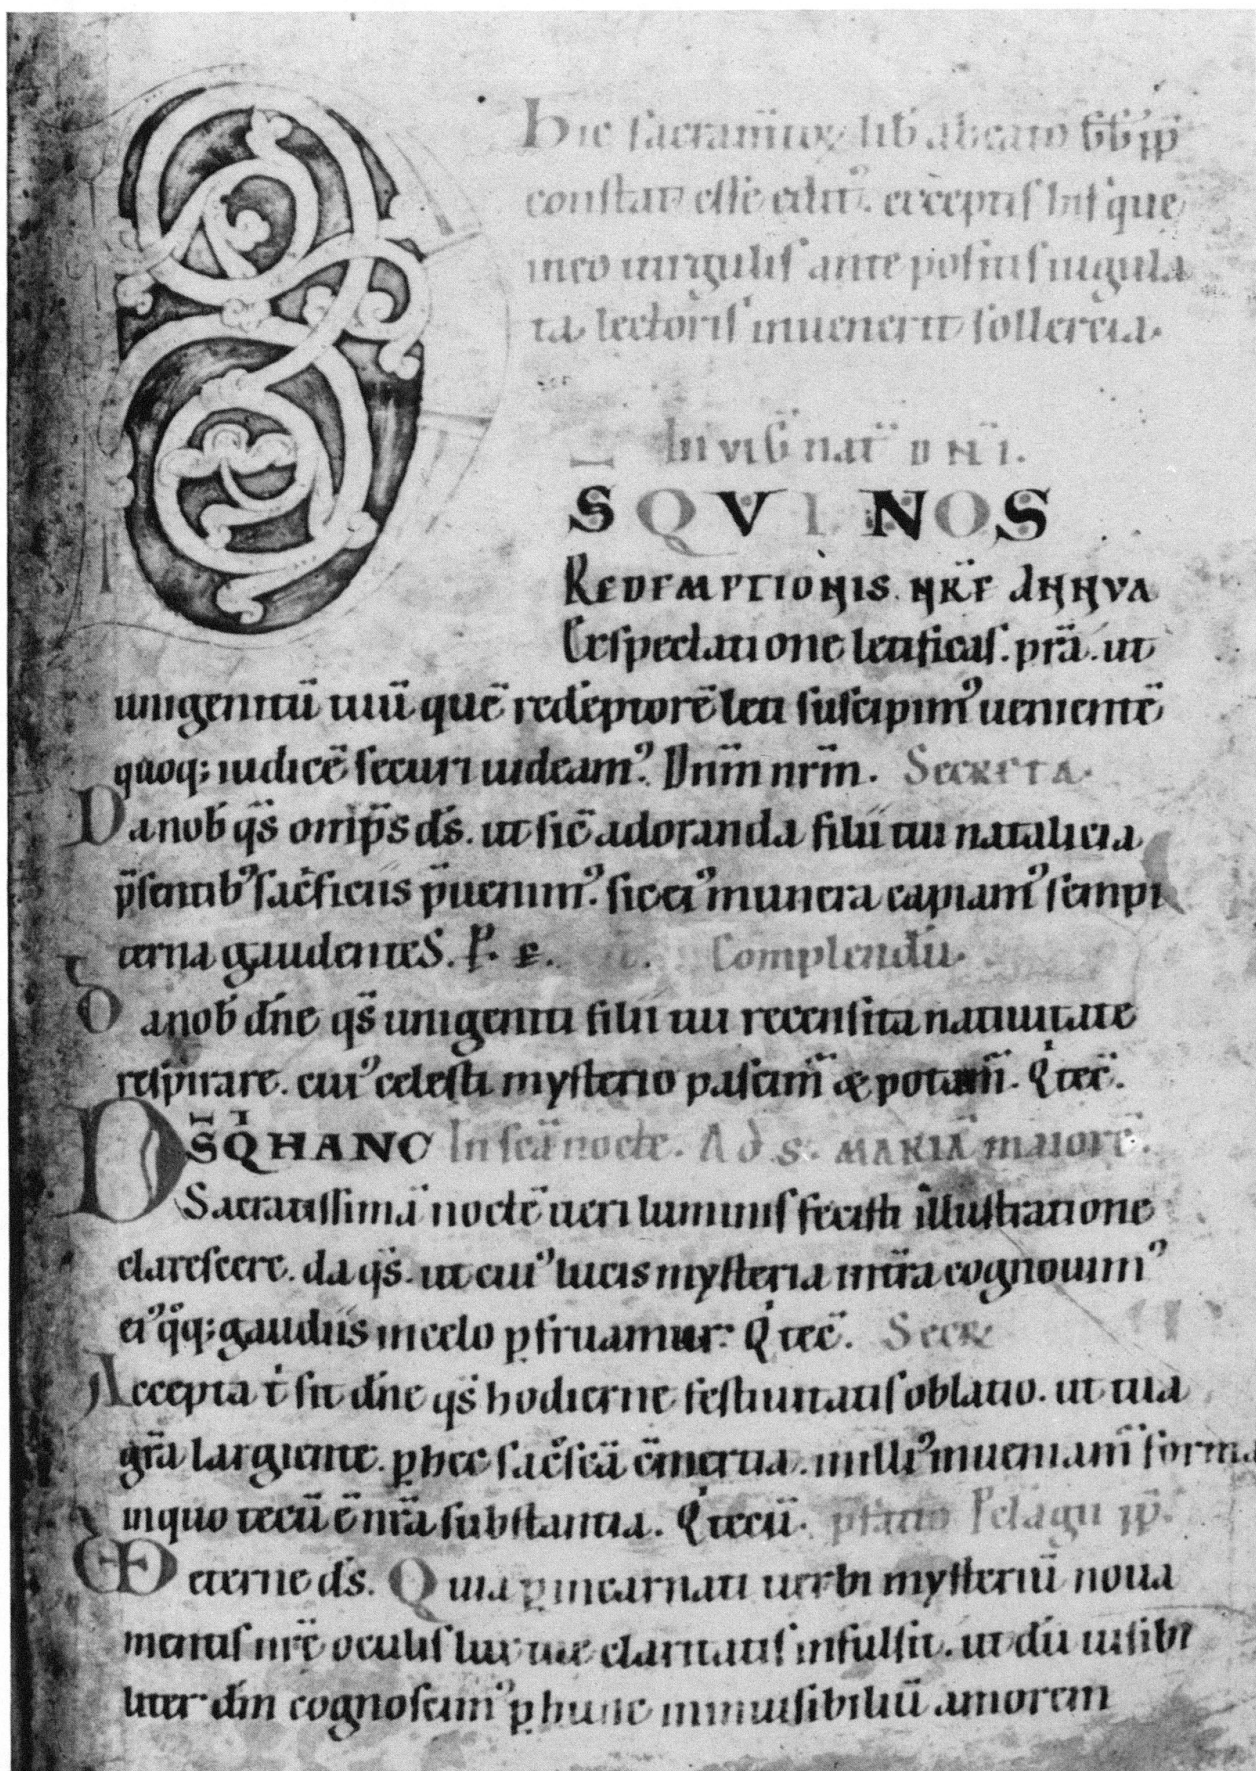 Hic sacram̄toꝝ lib̄ a beato ḡḡ pp̄
constat esse edit᷒. exceptis his que
in eo uirgulis ante positis iugula
ta lectoris inuenerit sollercia.
In vig̅ nat̄ DN̄I.
D S̄ QVI NOS
REDEMPTIONIS NR̄E ANNVA
Exspectatione letificas. pr̄a. ut
unigenitū tuū quē redēptorē leti suscipim᷒ uenientē
quoq; iudicē securi uideam᷒. Dn̄m nr̄m. SECRETA.
Da nob̄ qs̄ om̄ps̄ ds̄. ut sic̄ adoranda filii tui natalicia
p̄sentib᷒ sac̄ficiis p̄uenim᷒. sic ei᷒ munera capiam᷒ sempi
terna gaudentes. P. e. Complendū.
Da nob̄ dn̄e qs̄ unigeniti filii tui recensita natiuitate
respirare. cui᷒ celesti mysterio pascim̄ & potam̄. Q tec̄.
DS̄ Qͥ HANC In sc̄a nocte. Ad S. MARIĀ maiorē.
Sacratissimā noctē ueri luminis fecisti illustratione
clarescere. da qs̄. ut cui᷒ lucis mysteria in tr̄a cognouim᷒
ei᷒ qͦq; gaudiis in celo ꝑfruamur. Qͥ tec̄. Secꝝ
Accepta tͥ sit dn̄e qs̄ hodierne festiuitatis oblatio. ut tua
gr̄a largiente. ꝑ hec sac̄sc̄a c̄mertia. in illi᷒ inueniam̄ forma
in quo tecū ē nr̄a substantia. Qͥ tecū. p̄fatio Pelagii pp̄.
VD eterne ds̄. Quia ꝑ incarnati uerbi mysteriū noua
mentis nr̄e oculis lux tue claritatis infulsit. ut dū uisibi
liter dm̄ cognoscim᷒ ꝑ hunc in inuisibiliū amorem